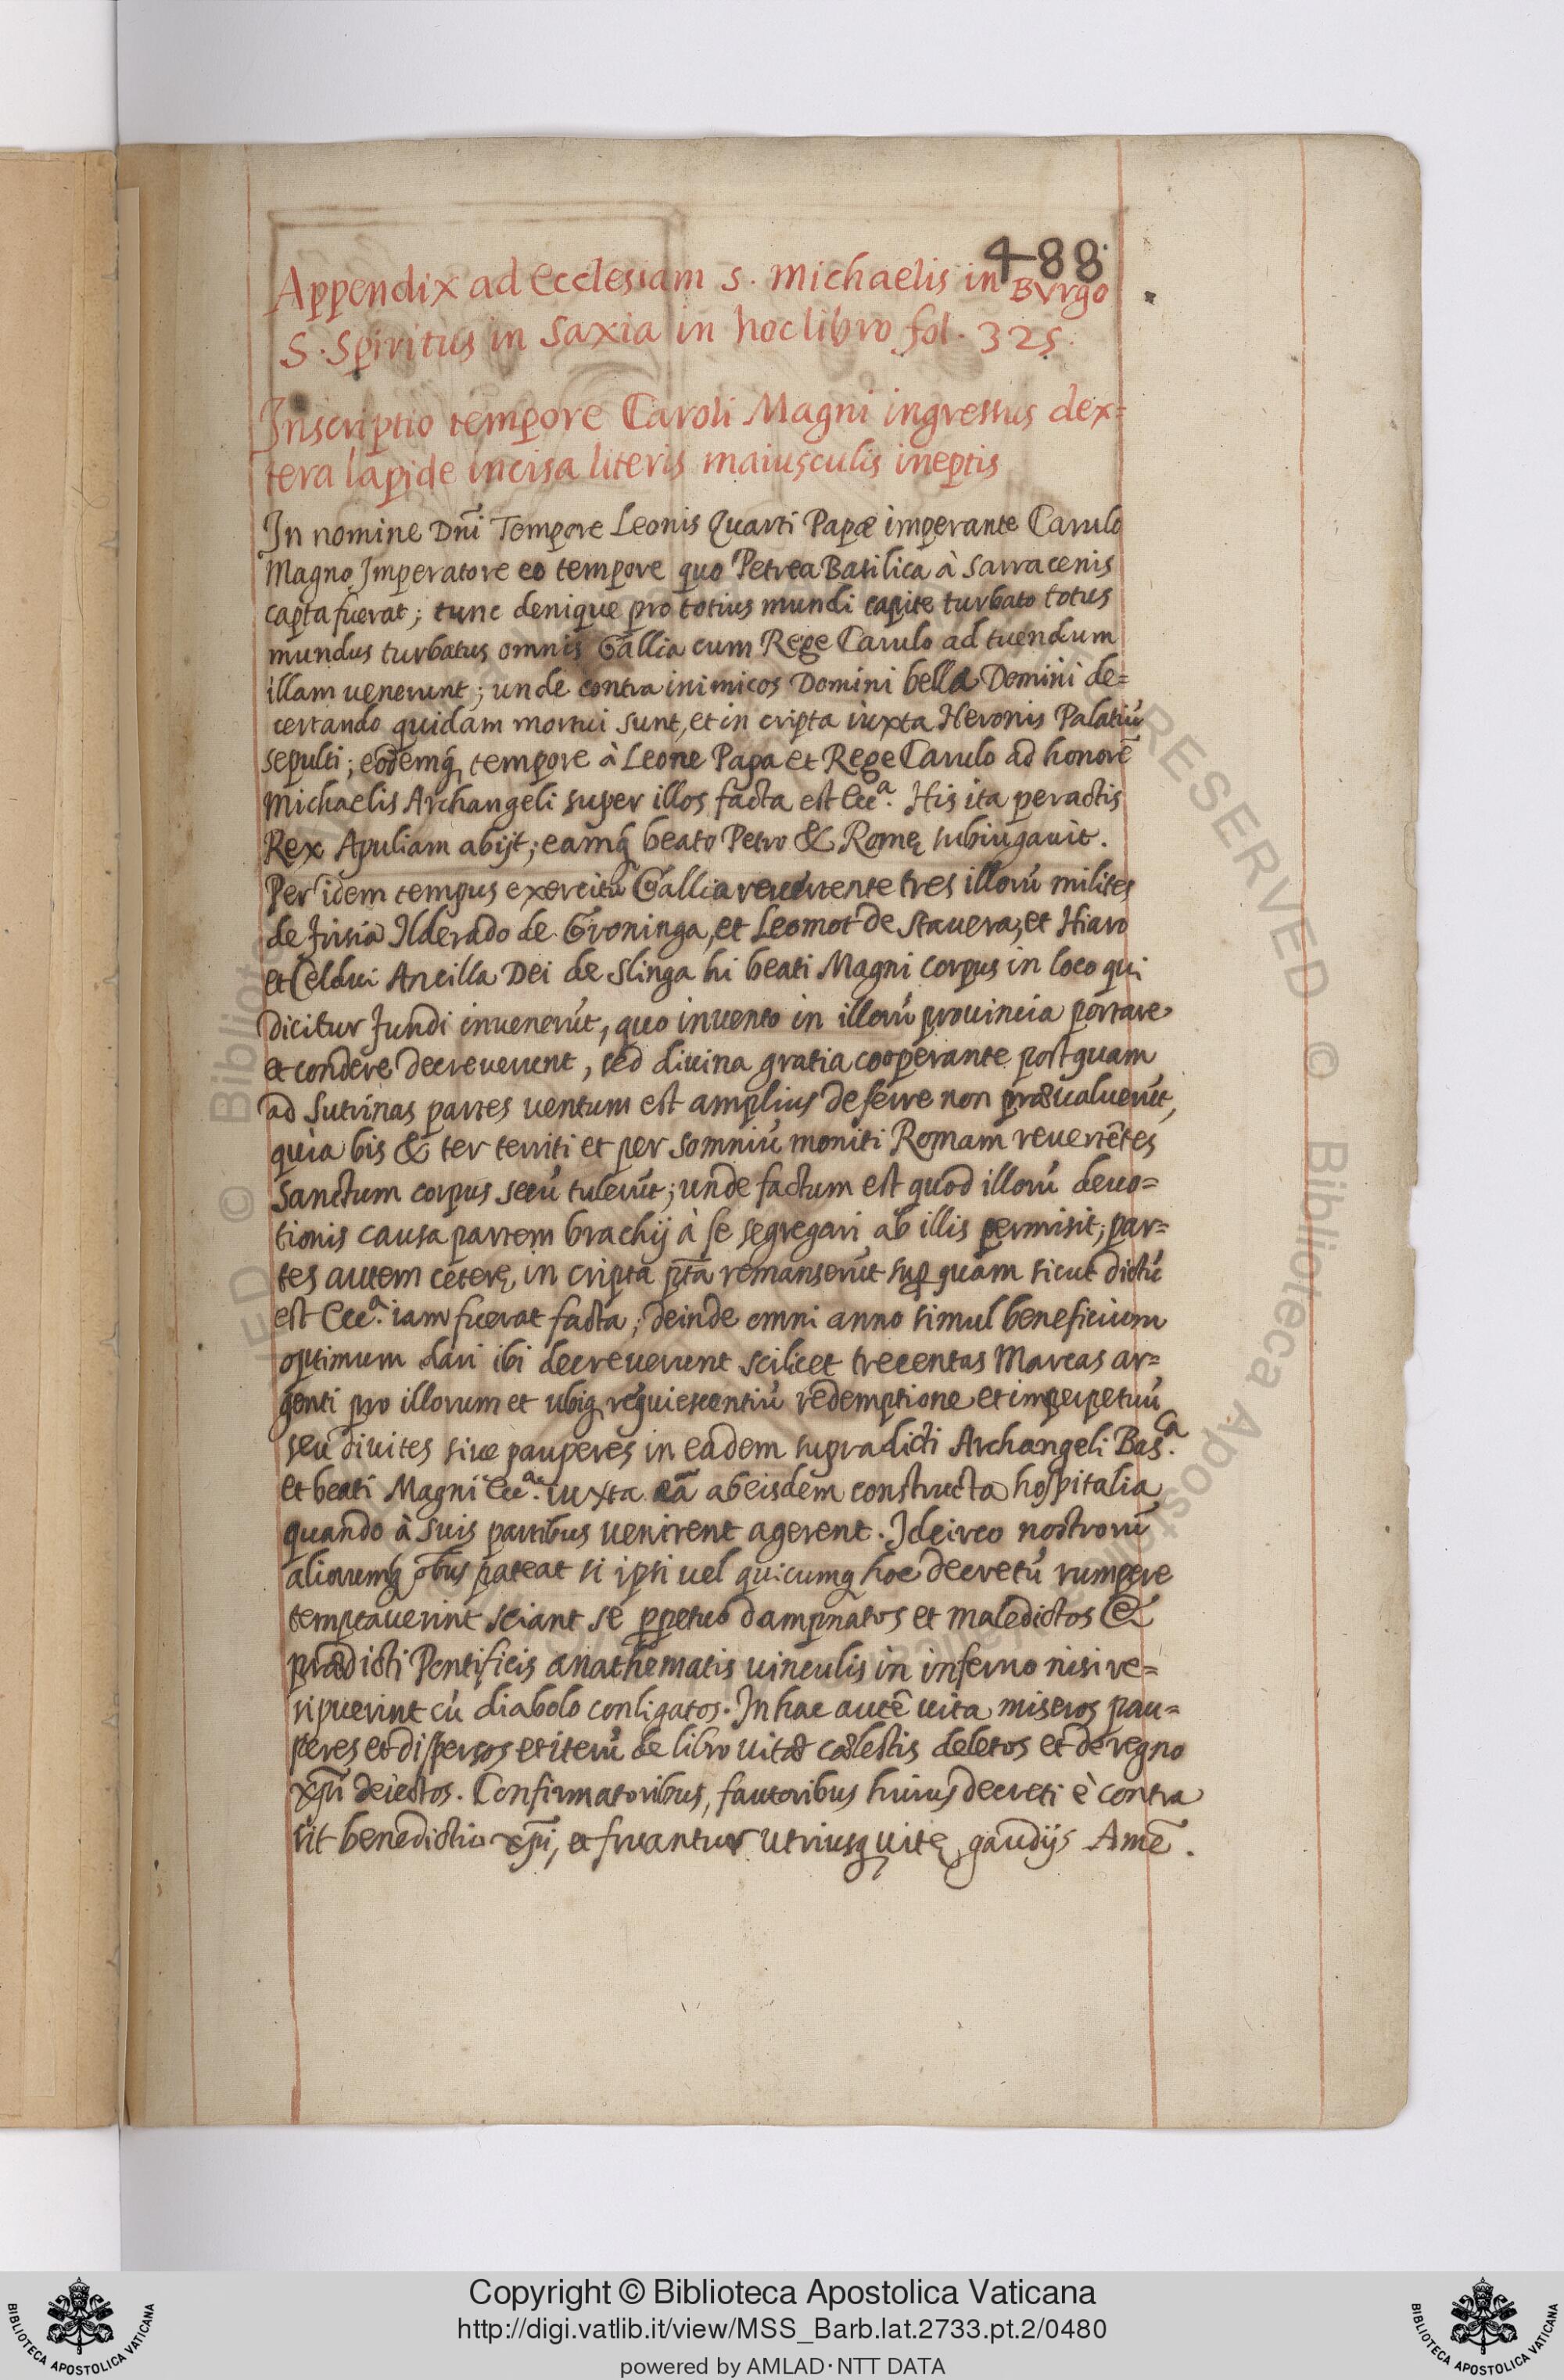 488.
Appendix ad Ecclesiam S. Michaelis in BVrgo
S. Spiritus in Saxia in hoc libro fol. 325.
Inscriptio tempore Caroli Magni ingressus dex=
tera lapide incisa literis maiusculis ineptis
In nomine Dn̄i Tempore Leonis Quarti Papæ imperante Carulo
Magno Imperatore eo tempore quo Petrea Basilica à Sarracenis
capta fuerat; tunc denique pro totius mundi capite turbato totus
mundus turbatus omnis Gallia cum Rege Carulo ad tuendum
illam uenerunt; unde contra inimicos Domini bella Domini de=
certando quidam mortui sunt, et in cripta iuxta Neronis Palatiū
sepulti; eodemq̨ tempore à Leone Papa et Rege Carulo ad honorē
Michaelis Archangeli super illos facta est Ecc.ª His ita peractis
Rex Apuliam abijt; eamq̨ beato Petro & Romę subiugauit.
Per idem tempus exercitu Gallia reuertente tres illorū milites
de frisia Ilderado de Groninga, et Leomot de Stauera, et Hiaro
et Celdui Ancilla Dei de Slinga hi beati Magni corpus in loco qui
dicitur fundi inuenerūt, quo inuento in illorū prouincia portare
et condere decreuerunt, sed diuina gratia cooperante postquam
ad Sutrinas partes uentum est amplius deferre non præualuerūt,
quia bis & ter territi et per somniū moniti Romam reuertētes
Sanctum corpus secū tulerūt; unde factum est quod illorū deuo=
tionis causa partem brachij à se segregari ab illis permisit; par=
tes autem ceterę, in cripta p̄ta remanserūt sup̱ quam sicut dictū
est Ecc.ª iam fuerat facta; deinde omni anno simul beneficium
optimum dari ibi decreuerunt scilicet trecentas Marcas ar=
genti pro illorum et ubiq̨ requiescentiū redemptione et imperpetuū
seu diuites siue pauperes in eadem supradicti Archangeli Bas.ca
et beati Magni Ecc.ª iuxta eā ab eisdem constructa hospitalia
quando à suis partibus uenirent agerent. Idcirco nostrorū
aliorumq̨ o͞bus pateat si ipsi uel quicumq̨ hoc decretū rumpere
temptauerint sciant se p̱petuo dampnatos et maledictos &
prædicti Pontificis anathematis uinculis in inferno nisi re=
sipuerint cū diabolo conligatos. In hac autē uita miseros pau=
peres et dispersos et iterū de libro uitæ cælestis deletos et de regno
xp̄i deiectos. Confirmatoribus, fautoribus huius decreti è contra
sit benedictio xp̄i, et fruantur utriusq̨ uitę gaudijs Amē.
Copyright © Biblioteca Apostolica Vaticana
http://digi.vatlib.it/view/MSS_Barb.lat.2733.pt.2/0480
powered by AMLAD·NTT DATA
BIBLIOTECA APOSTOLICA VATICANA
BIBLIOTECA APOSTOLICA VATICANA